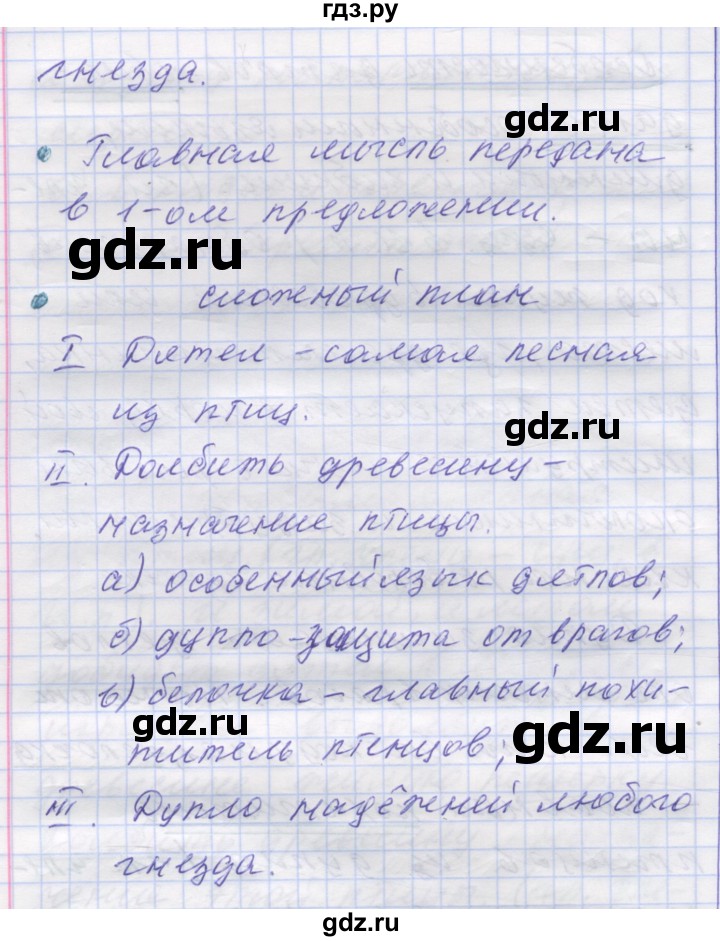 гдз.ру
гнезда.
gdz.ru
Главная мысль передана
в 1-ом предложении.
gdz.ru
сложный план
I Дятел - самая лесная
из птиц.
gdz.ru
II. Долбить древесину -
назначение птицы.
а) особенный язык дятлов;
б) дупло - защита от врагов;
в) белочка - главный похи-
gdz.ru
gdz.ru
титель птенцов;
III. Дупло надёжней любого
гнезда.
gdz.ru